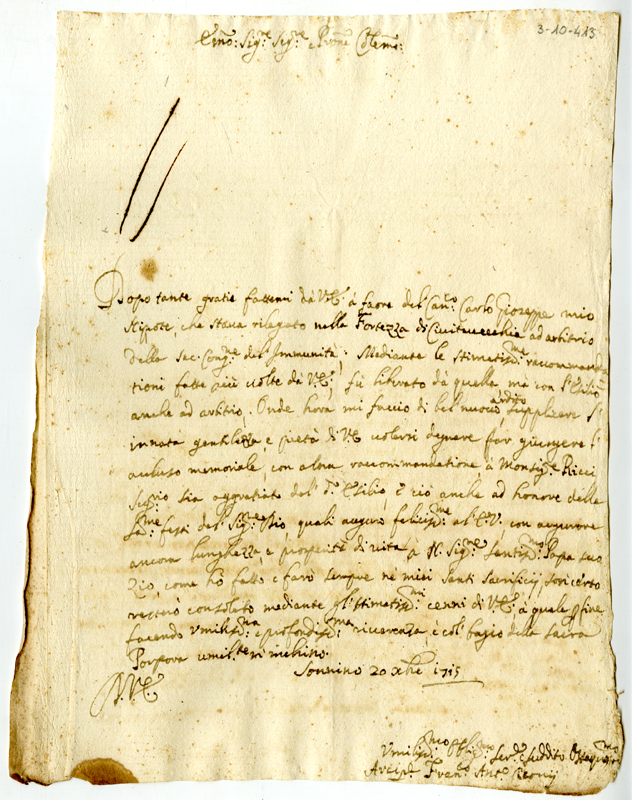 3-10-413
Emo: Sig.re Sig.re e Prone Colemo:
Dopo tante gratie fattemi dà V.E. à faore del Can.co Carlo Gioseppe mio
Nipote, che stava rilegato nella Fortezza di Civitavecchia ad arbitrio
della Sac. Cong.ne del Immunità; Mediante le stimatiss.me raccommanda
tioni fatte più volte dà V.E., fù liberato dà quella, mà con l'esilio
anche ad arbitrio. Onde hora mi faccio di bel nuovo ardito supplicar l'
innata gentilezza, e pietà di V.E. volersi degnare far giungere l'
accluso memoriale, con alcuna raccommandatione à Monsig.re Ricci
Seg.rio sia aggratiato del d.o Esilio, e ciò anche ad honore delle
S.me feste del Sig.re Iddio quali auguro feliciss.me al E.V., con augurare
ancora lunghezza, e prosperità di vita à N. Sig.re Santiss.mo Papa suo
Zio, come hò fatto e farò sempre ne miei Santi Sacrificij, sicuro
resterò consolato mediante gl'stimatiss.mi cenni di V.E. à quale p fine
facendo Umiliss.ma e profondiss.ma riverenza, e col bagio della sacra
Porpora umil.te m'inchino.
Sonnino 20 Xbre 1715
D.V.E.
Umiliss.mo Obblig.mo Ser.re e suddito Ossequios.mo
Arcip.e Fran.co Ant.o